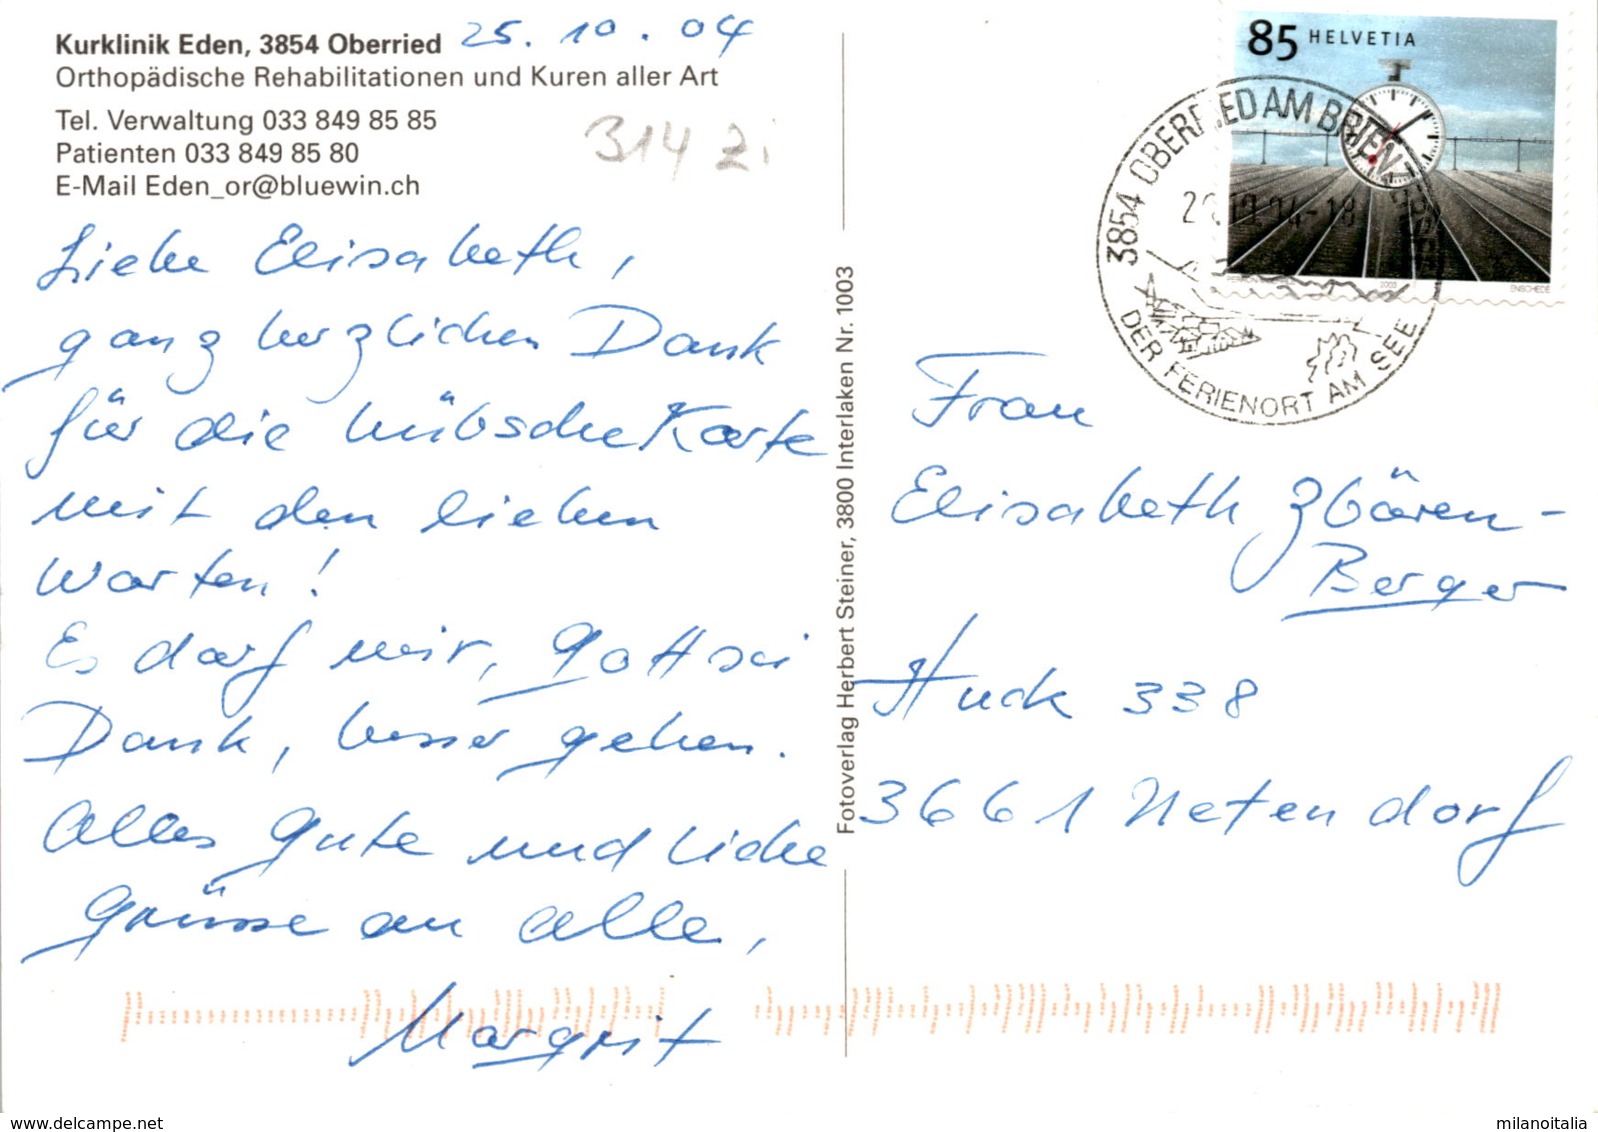 Kurklinik Eden, 3854 Oberried 25.10.04
Orthopädische Rehabilitationen und Kuren aller Art
Tel. Verwaltung 033 849 85 85
Patienten 033 849 85 80
E-Mail Eden_or@bluewin.ch
314 Zi
Liebe Elisabeth,
ganz herzlichen Dank
für die hübsche Karte
mit den lieben
Worten!
Es darf mir, Gott sei
Dank, besser gehen.
Alles Gute und liebe
Grüsse an alle,
Margrit
Fotoverlag Herbert Steiner, 3800 Interlaken Nr. 1003
85 HELVETIA
2003
ENSCHEDÉ
3854 OBERRIED AM BRIENZ
DER FERIENORT AM SEE
Frau
Elisabeth Zbären-
Berger
Huck 338
3661 Uetendorf
milanoitalia